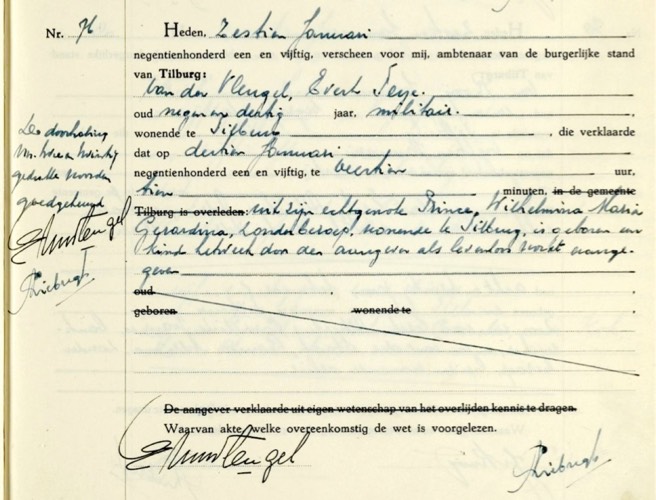 Nr. 76
Heden, zestien Januari
negentienhonderd een en vijftig, verscheen voor mij, ambtenaar van de burgerlijke stand
van Tilburg:
van der Vleugel, Evert
oud negen en dertig jaar, militair.
wonende te Tilburg, die verklaarde
dat op dertien Januari
negentienhonderd een en vijftig, te veertien uur,
tien minuten, in de gemeente
Tilburg is overleden: uit zijn echtgenote Prince, Wilhelmina Maria
Gerardina, zonder beroep, wonende te Tilburg, is geboren een
kind hetwelk door den aangever als levenloos wordt aange-
geven
oud
geboren wonende te
De aangever verklaarde uit eigen wetenschap van het overlijden kennis te dragen.
Waarvan akte, welke overeenkomstig de wet is voorgelezen.
De doorhaling
gedrukte woorden
goedgekeurd